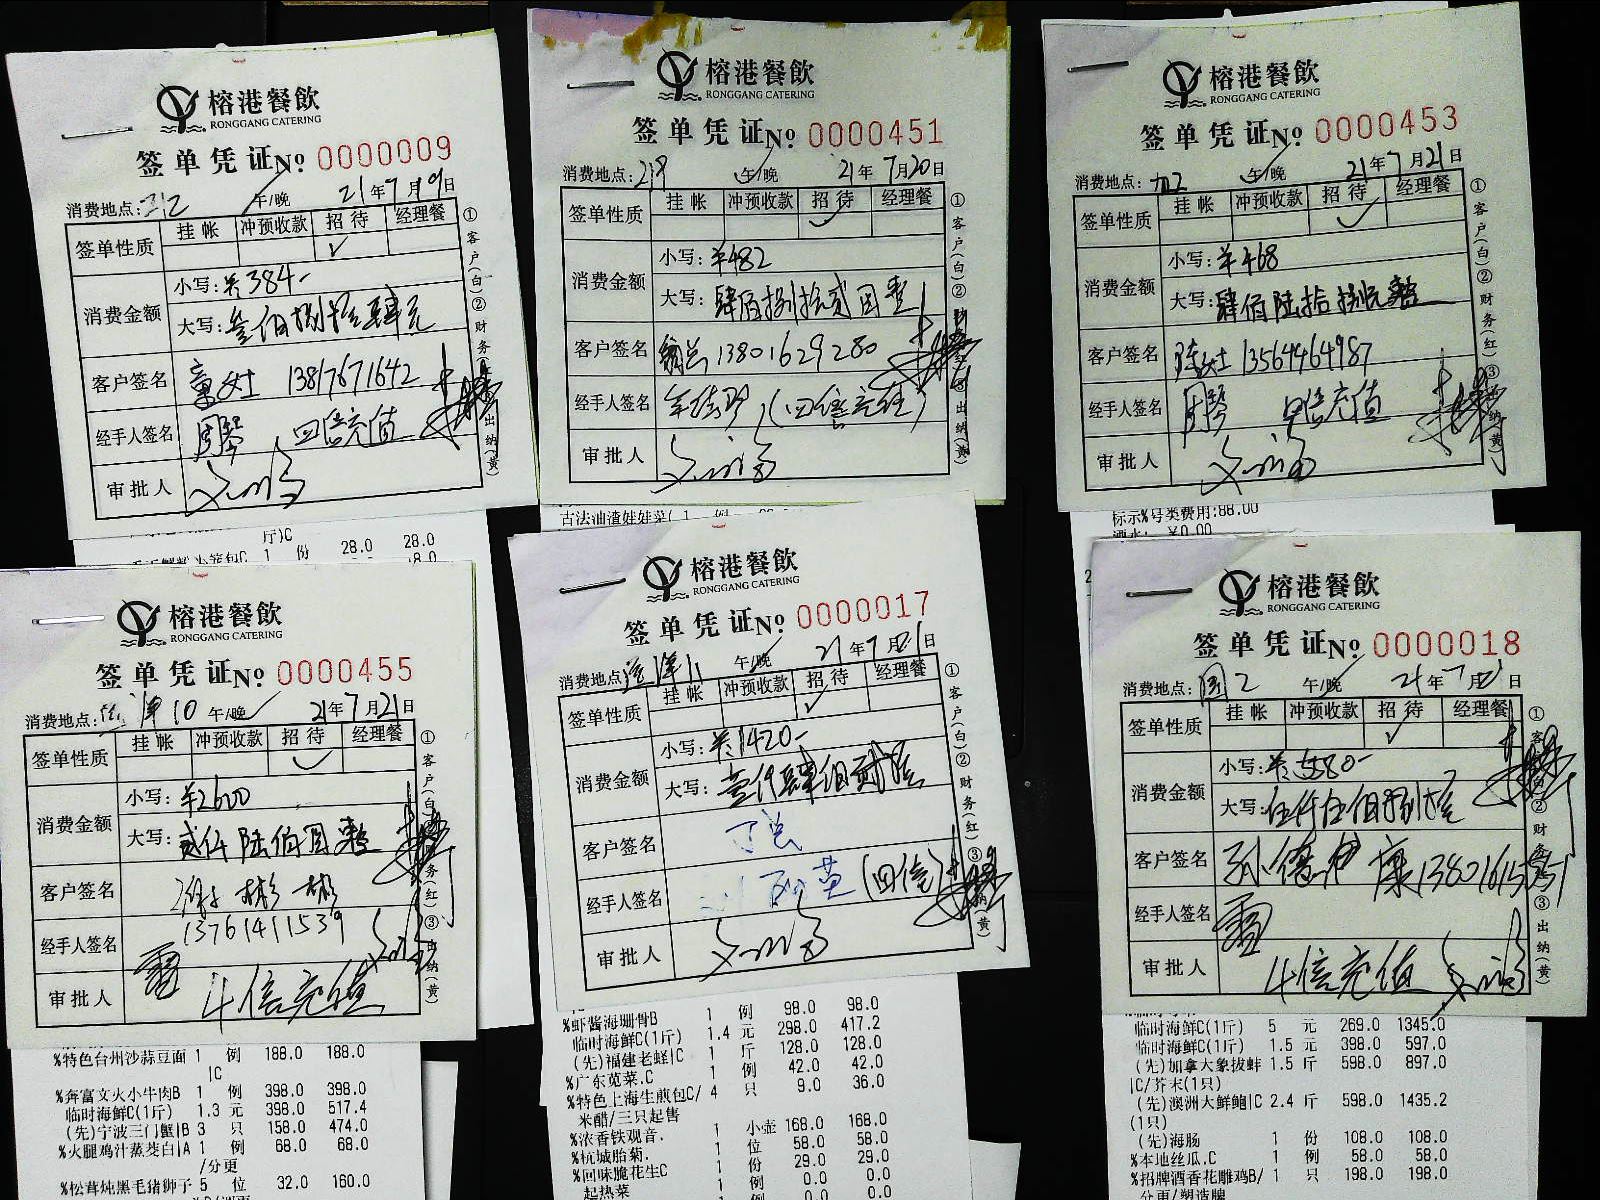 榕港餐飲
RONGGANG CATERING
签单凭证 No 0000009
消费地点: 午/晚 21年7月19日
签单性质 挂帐 冲预收款 招待 ✓ 经理餐
消费金额 小写: ¥384-
大写: 叁佰捌拾肆元
客户签名 童女士 13817671642
经手人签名 四倍充值
审批人
①客户(白)②财务(红)③出纳(黄)
厅)C
1 份 28.0 28.0
榕港餐飲
RONGGANG CATERING
签单凭证 No 0000451
消费地点: 218 午/晚 21年7月20日
签单性质 挂帐 冲预收款 招待 ✓ 经理餐
消费金额 小写: ¥482
大写: 肆佰捌拾贰圆整
客户签名 13801629280
经手人签名 (四倍充值)
审批人
①客户(白)②财务(红)③出纳(黄)
古法油渣娃娃菜( 1 例
榕港餐飲
RONGGANG CATERING
签单凭证 No 0000453
消费地点: 午/晚 21年7月21日
签单性质 挂帐 冲预收款 招待 ✓ 经理餐
消费金额 小写: ¥468
大写: 肆佰陆拾捌元整
客户签名 陈女士 13564464987
经手人签名 四倍充值
审批人
①客户(白)②财务(红)③出纳(黄)
标示%号类费用:88.00
酒水: ¥0.00
榕港餐飲
RONGGANG CATERING
签单凭证 No 0000455
消费地点: 10 午/晚 21年7月21日
签单性质 挂帐 冲预收款 招待 ✓ 经理餐
消费金额 小写: ¥2600
大写: 贰仟陆佰圆整
客户签名 彬彬
经手人签名 13761411539
审批人 4倍充值
①客户(白)②财务(红)③出纳(黄)
%特色台州沙蒜豆面 1 例 188.0 188.0
|C
%奔富文火小牛肉B 1 例 398.0 398.0
临时海鲜C(1斤) 1.3 元 398.0 517.4
(先)宁波三门蟹|B 3 只 158.0 474.0
%火腿鸡汁蒸茭白|A 1 例 68.0 68.0
/分更
%松茸炖黑毛猪狮子 5 位 32.0 160.0
榕港餐飲
RONGGANG CATERING
签单凭证 No 0000017
消费地点: 午/晚 21年7月21日
签单性质 挂帐 冲预收款 招待 ✓ 经理餐
消费金额 小写: ¥1420-
大写: 壹仟肆佰贰拾
客户签名 丁总
经手人签名 (四倍)
审批人
①客户(白)②财务(红)③出纳(黄)
1 例 98.0 98.0
%虾酱海珊骨B
临时海鲜C(1斤) 1.4 元 298.0 417.2
(先)福建老蛏|C 1 斤 128.0 128.0
%广东苋菜.C 1 例 42.0 42.0
%特色上海生煎包C/ 4 只 9.0 36.0
米醋/三只起售
%浓香铁观音. 1 小壶 168.0 168.0
%杭城胎菊. 1 位 58.0 58.0
%回味脆花生C 1 份 29.0 29.0
起热菜 1 例 0.0 0.0
榕港餐飲
RONGGANG CATERING
签单凭证 No 0000018
消费地点: 国2 午/晚 21年7月21日
签单性质 挂帐 冲预收款 招待 ✓ 经理餐
消费金额 小写: ¥5580-
大写: 伍仟伍佰捌拾
客户签名
经手人签名
审批人 4倍充值
①客户(白)②财务(红)③出纳(黄)
临时海鲜C(1斤) 5 元 269.0 1345.0
临时海鲜C(1斤) 1.5 元 398.0 597.0
(先)加拿大象拔蚌 1.5 斤 598.0 897.0
|C/芥末(1只)
(先)澳洲大鲜鲍|C 2.4 斤 598.0 1435.2
(1只)
(先)海肠 1 份 108.0 108.0
%本地丝瓜.C 1 例 58.0 58.0
%招牌酒香花雕鸡B/ 1 只 198.0 198.0